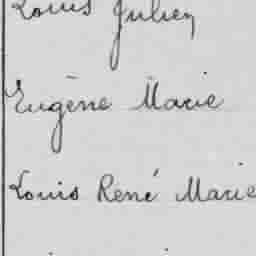 Louis Julien
Eugène Marie
Louis René Marie